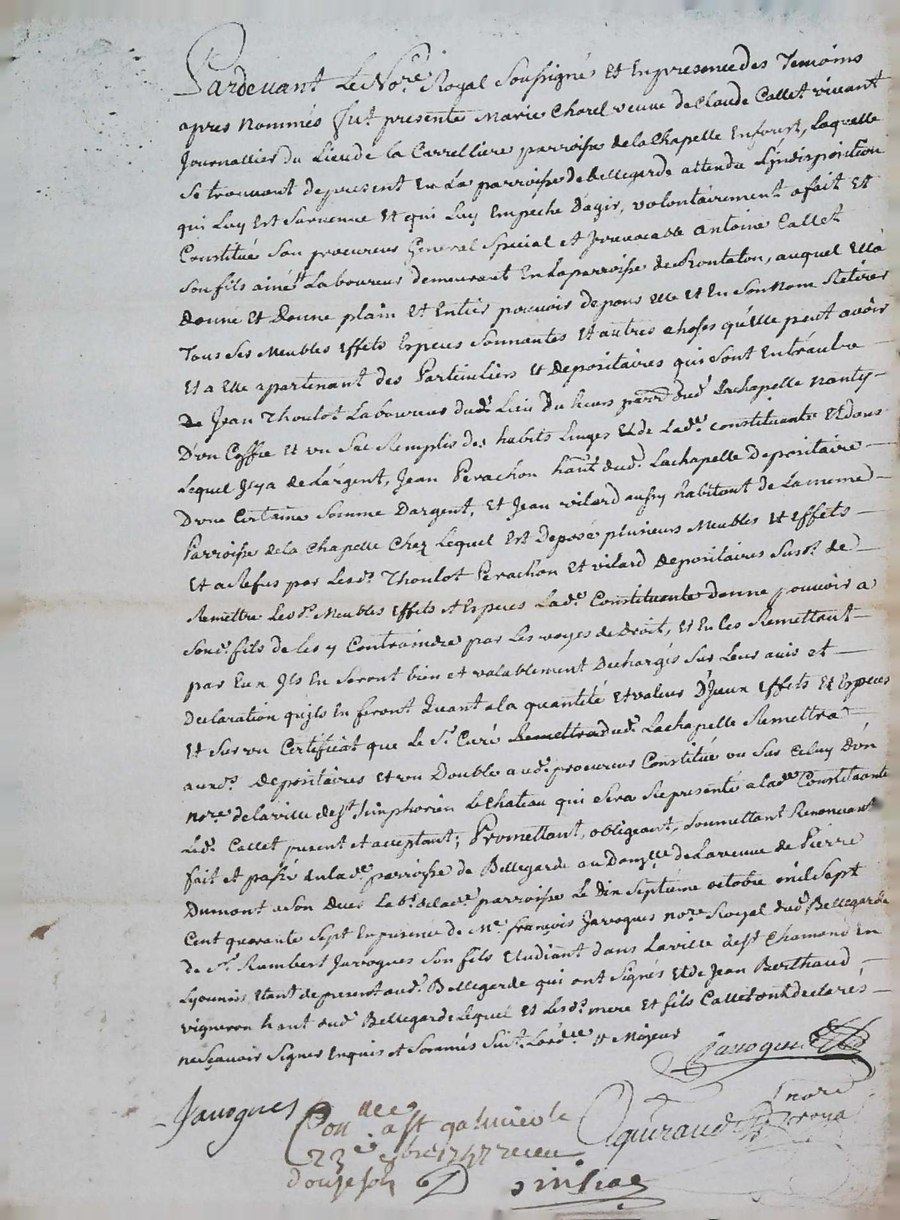 Pardevant Le No.re Royal Soussigné Et En presence des Temoins
apres Nommés fut presente Marie Chorel veuve de Claude Callet vivant
Journallier du Lieu de la Carrelliere parroisse de la Chapelle Enforest, Laquelle
se trouvant de present En La parroisse de Bellegarde attendu L'indisposition
qui Luy Est Survenue Et qui Luy Empeche D'agir, volontairement a fait Et
Constitué Son procureur General Special et Irrevocable Antoine Callet
Son fils ainé Laboureur demeurant En la parroisse de auquel Ella
donne Et Donne plain Et Entier pouvoir de pour elle Et En Son Nom Retirer
Tous Ses Meubles Effets Especes Sonnantes Et autres choses qu'Elle peut avoir
Et a Elle apartenant des Particuliers Et Depositaires qui Sont Entr'autre
de Jean Thoulot Laboureur dud. Lieu Du parr. dud. Lachapelle nanty
D'un Coffre Et un Sac Remplis des habits Linges Et de Lad.e constituante Et dans
Lequel Il y a de L'argent, Jean Perachon hant. dud. Lachapelle Depositaire
D'une Certaine Somme D'argent, Et Jean vilard aussy habitant de La meme
Parroisse de la Chapelle Chez Lequel Est Deposé plusieurs Meubles Et Effets
Et a Refus par Lesd. Thoulot Perachon Et vilard Depositaires Susd. de
Remettre Lesd. Meubles Effets Et Especes Lad.e Constituante donne pouvoir a
Sond. fils de Les y Contraindre par Les voyes de droit, Et En Les Remettant
par Eux Ils En Seront bien et valablement Dechargés Sur Leur avis et
Declaration qu'ils En feront Quant a La quantité Et valeur D'Iceux Effets Et Especes
Et Sur un Certifficat que Le Sr. Curé Remettra dud. Lachapelle Remettra
auxd. Depositaires Et un Double aud. procureur Constitué ou Sur Celuy D'un
no.re de la ville de St. Simphorien Le Chateau qui Sera Representé a lad.e Constituante
Led. Callet present et acceptant; Promettant, obligeant, Soumettant Renoncant
fait et passé En lad.e parroisse de Bellegarde au Domicille de La veuve de Pierre
Dumont de lad.e parroisse Le Dix Septieme octobre mil Sept
Cent quarante Sept En presence de Me. françois Javogues no.re Royal dud. Bellegarde
de Sr. Rambert Javogues Son fils Etudiant dans La ville de St. Chamond En
Lyonnois Etant de present aud. Bellegarde qui ont Signés Et de Jean Berthaud
vigneron hant. aud. Bellegarde Lequel Et Lesd. mere Et fils Callet ont declarés
ne Sçavoir Signer Enquis et Sommés
Javogues
Javogues
no.re
Con.lle a St. galmier le
23e 8bre 1747 receu
douze sols
Guiraud royal